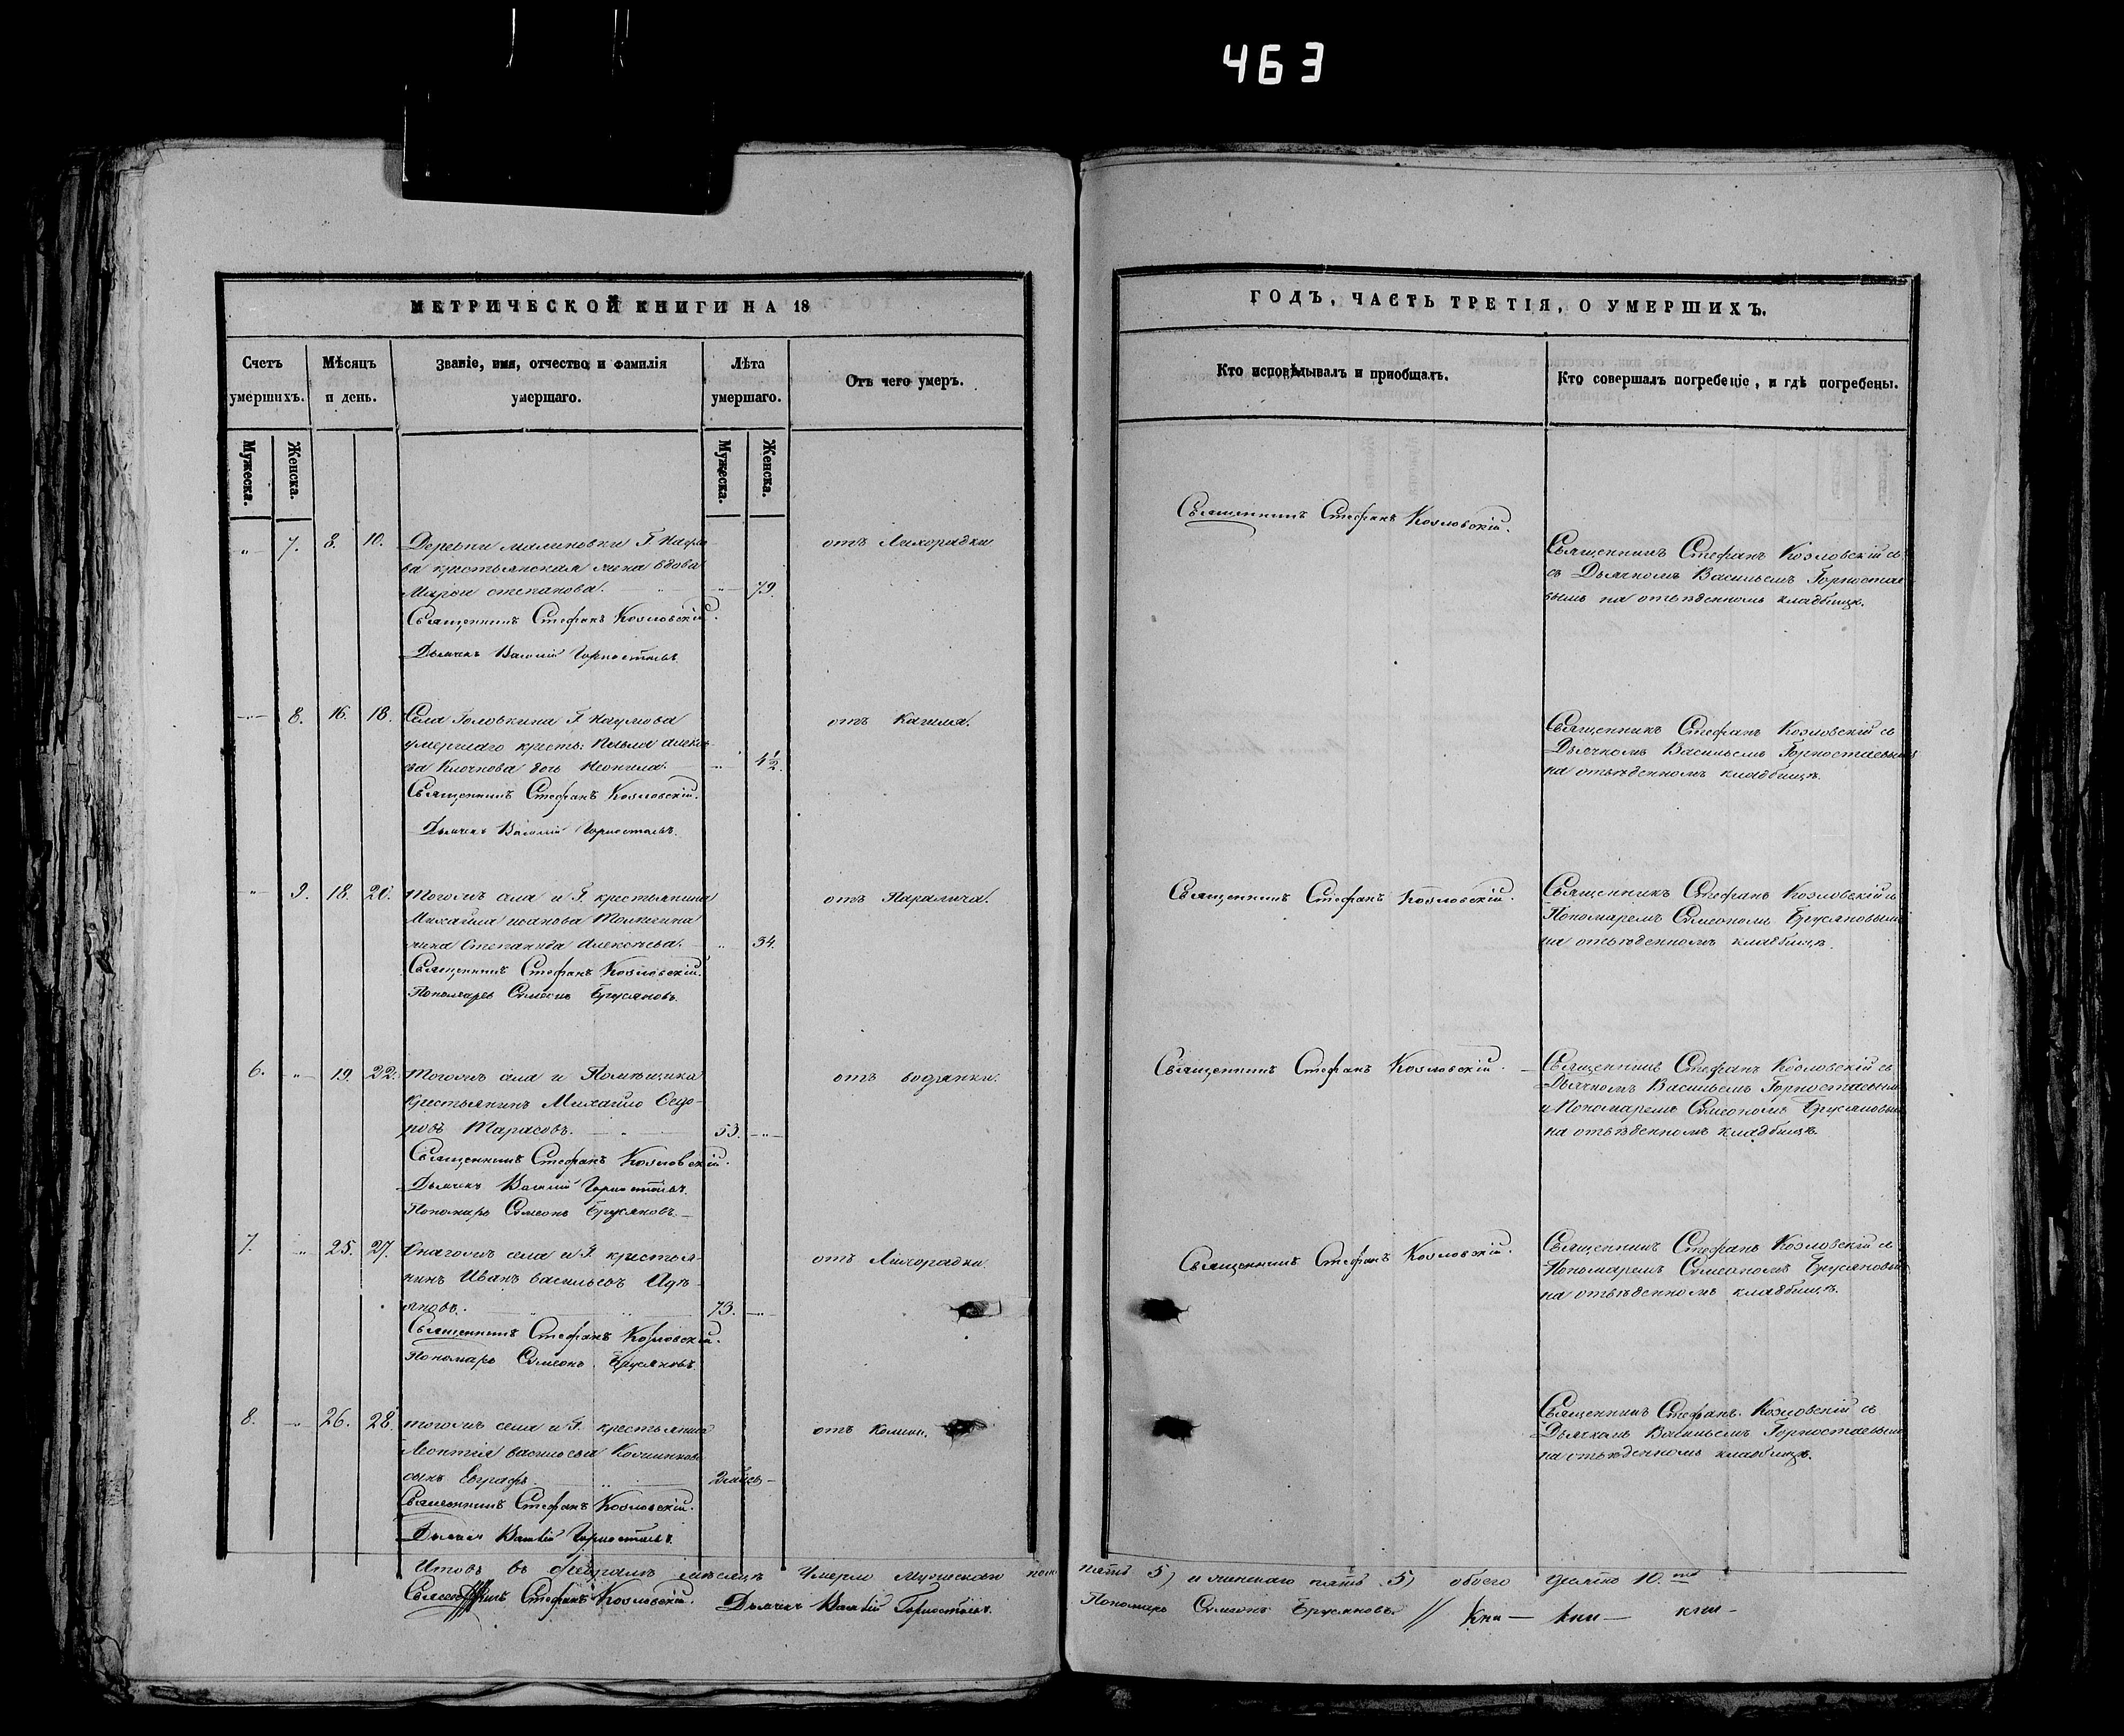 463
МЕТРИЧЕСКОЙ КНИГИ НА 18
Счетъ умершихъ.
Мѣсяцъ и день.
Званіе, имя, отчество и фамилія умершаго.
Лѣта умершаго.
Отъ чего умеръ.
Мужеска.
Женска.
Мужеска.
Женска.
„ 7. 8. 10. Деревни Малиновки Г. Наумо
ва крестьянская жена вдова
Марѳа Степанова. „ 79.
отъ Лихорадки
Священникъ Стефанъ Козловскій.
Дьячекъ Василій Горностаевъ.
„ 8. 16. 18. Села Головкина Г. Наумова
умершаго кресть: Алекѣ
ева Клочкова дочь Неонила. „ 4½.
отъ Кашля.
Священникъ Стефанъ Козловскій.
Дьячекъ Василій Горностаевъ.
„ 9. 18. 20. Тогожъ села и Г. крестьянина
Михайла Иванова
жена Степанида Алексѣева. „ 34.
отъ Паралича.
Священникъ Стефанъ Козловскій.
Пономарь Симеонъ Брусяновъ.
6. „ 19. 22. Тогожъ села и Помѣщика
крестьянинъ Михайло Ѳедо-
ровъ Тарасовъ. 53. „
отъ водянки.
Священникъ Стефанъ Козловскій.
Дьячекъ Василій Горностаевъ.
Пономарь Симеонъ Брусяновъ.
7. „ 25. 27. Онагожъ села и Г. крестья-
нинъ Иванъ Васильевъ
73. „
отъ Лихорадки.
Священникъ Стефанъ Козловскій.
Пономарь Симеонъ Брусяновъ.
8. „ 26. 28. Тогожъ села и Г. крестьянина
Леонтія Васильева
сынъ Евграфъ.
отъ
Священникъ Стефанъ Козловскій.
Дьячекъ Василій Горностаевъ.
Итого въ Февралѣ мѣсяцѣ Умерло Мужескаго пола
Священникъ Стефанъ Козловскій. Дьячекъ Василій Горностаевъ.
ГОДЪ, ЧАСТЬ ТРЕТІЯ, О УМЕРШИХЪ.
Кто исповѣдывалъ и приобщалъ.
Кто совершалъ погребеніе, и гдѣ погребены.
Священникъ Стефанъ Козловскій.
Священникъ Стефанъ Козловскій съ
съ Дьячкомъ Васильемъ Горностае
вымъ на отвѣденномъ кладбищѣ.
Священникъ Стефанъ Козловскій съ
Дьячкомъ Васильемъ Горностаевымъ
на отвѣденномъ кладбищѣ.
Священникъ Стефанъ Козловскій.
Священникъ Стефанъ Козловскій съ
Пономаремъ Симеономъ Брусяновымъ
на отвѣденномъ кладбищѣ.
Священникъ Стефанъ Козловскій.
Священникъ Стефанъ Козловскій съ
Дьячкомъ Васильемъ Горностаевымъ
и Пономаремъ Симеономъ Брусяновым
на отвѣденномъ кладбищѣ.
Священникъ Стефанъ Козловскій.
Священникъ Стефанъ Козловскій съ
Пономаремъ Симеономъ Брусяновым
на отвѣденномъ кладбищѣ.
Священникъ Стефанъ Козловскій съ
Дьячкомъ Васильемъ Горностаевым
на отвѣденномъ кладбищѣ.
пять 5) и женскаго пять 5) обоего 10.
Пономарь Симеонъ Брусяновъ. //